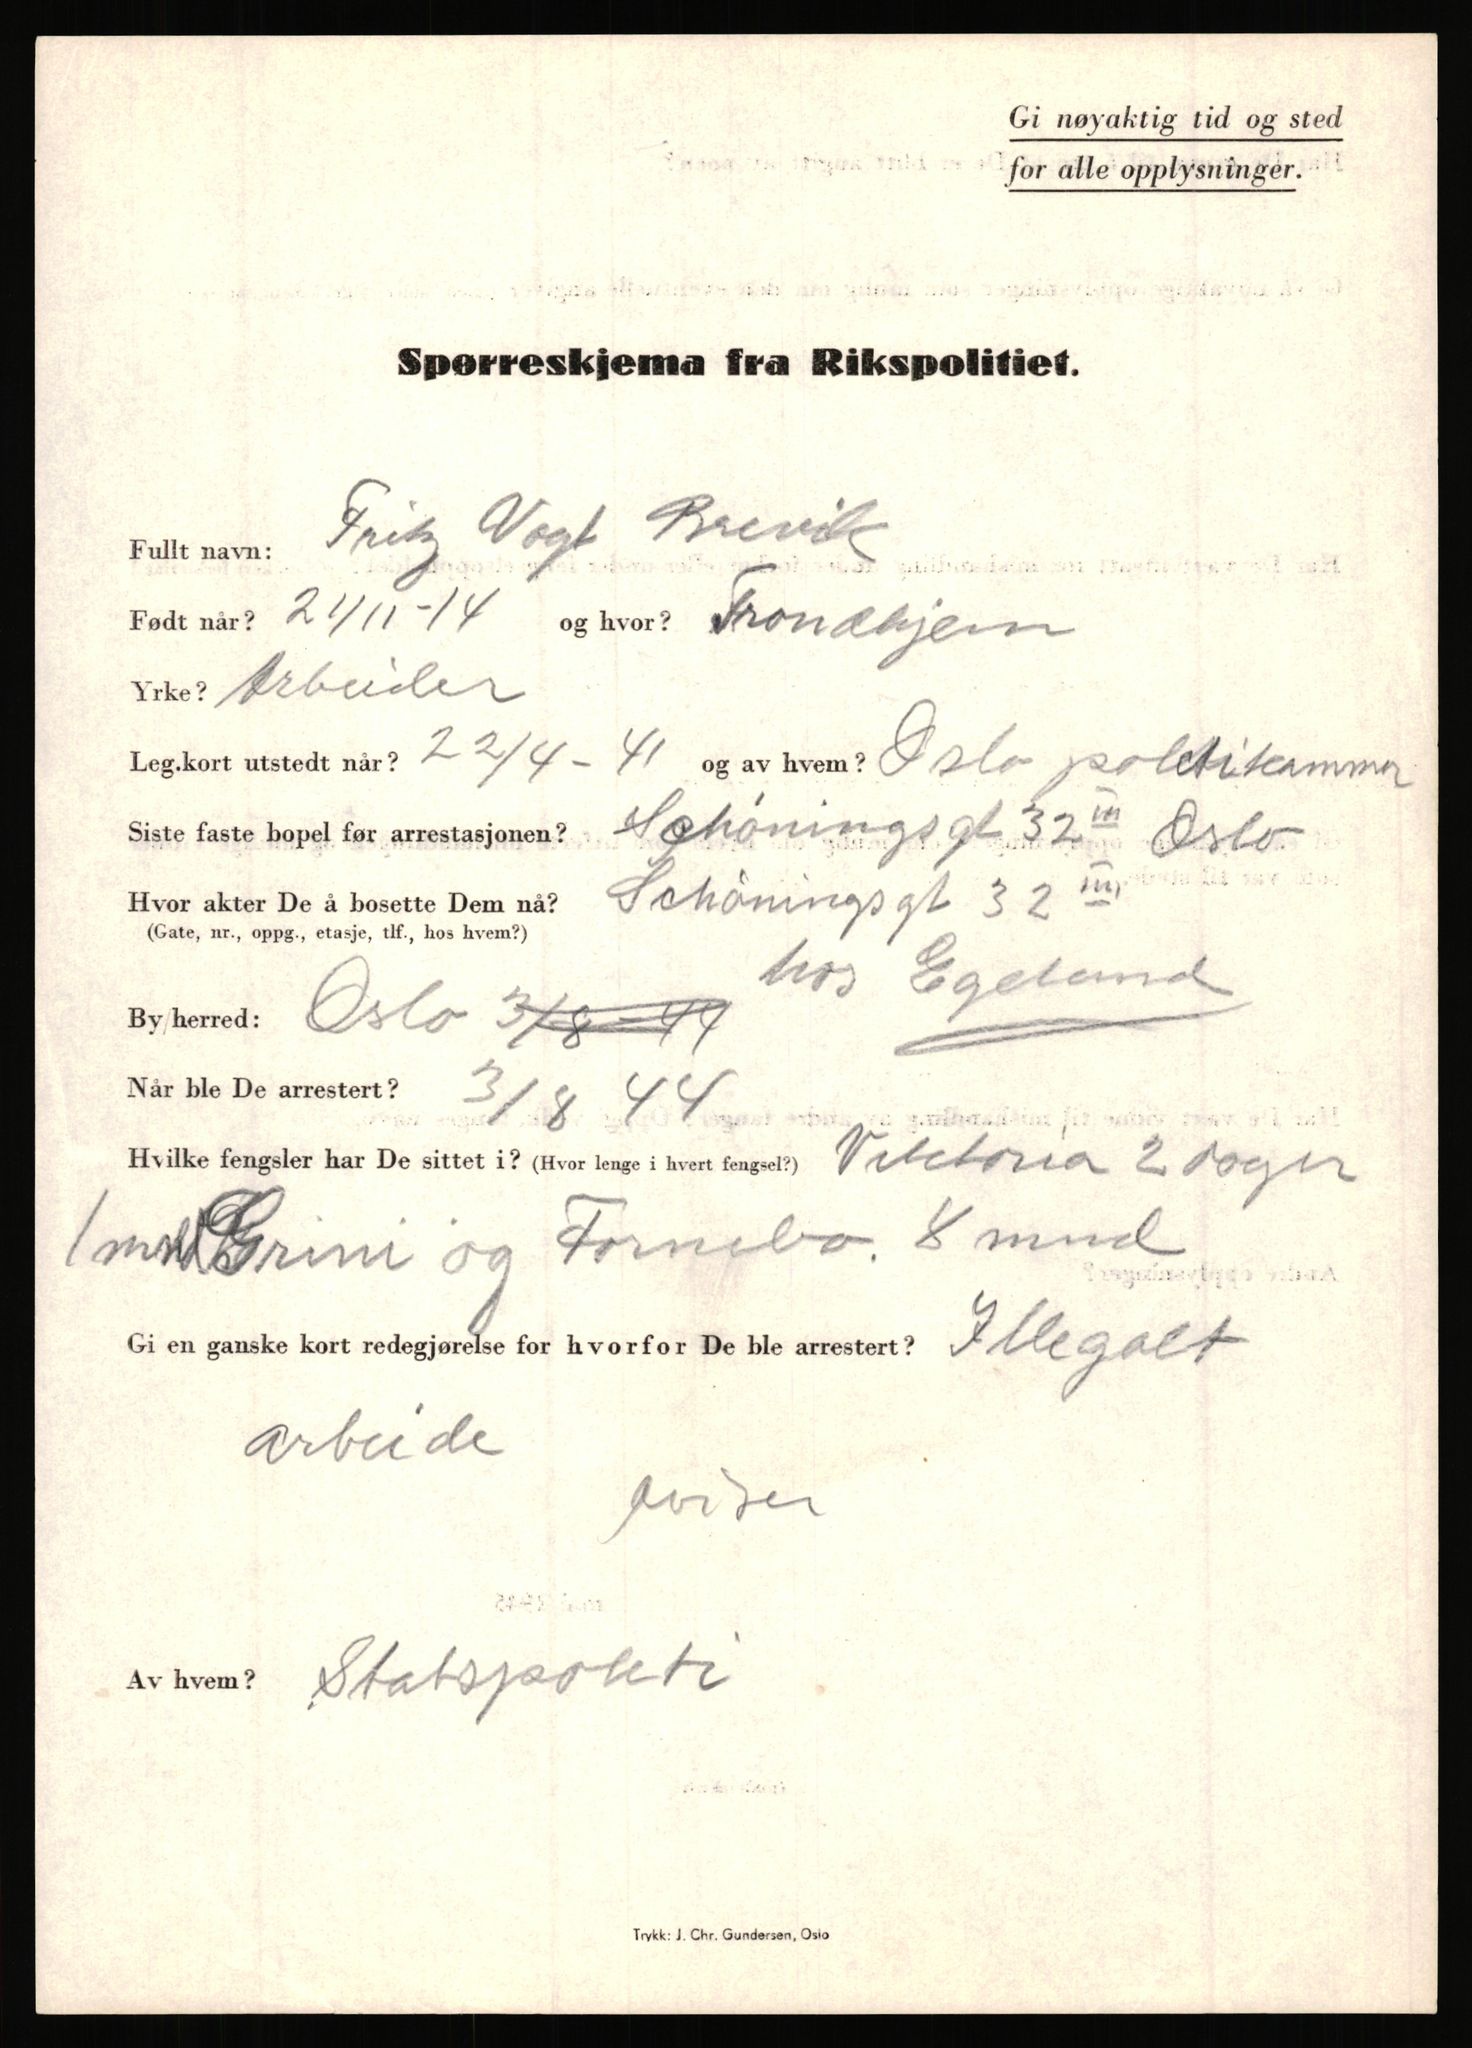 Gi nøyaktig tid og sted
for alle opplysninger.
Spørreskjema fra Rikspolitiet.
Fullt navn: Fritz Vogt Brevik
Født når? 21/11-14 og hvor? Trondhjem
Yrke? Arbeider
Leg.kort utstedt når? 22/4-41 og av hvem? Oslo politikammer
Siste faste bopel før arrestasjonen? Schöningsgt 32 III Oslo
Hvor akter De å bosette Dem nå? Schöningsgt 32 III
(Gate, nr., oppg., etasje, tlf., hos hvem?)
hos Egeland
By/herred: Oslo 3/8-44
Når ble De arrestert? 3/8 44
Hvilke fengsler har De sittet i? (Hvor lenge i hvert fengsel?) Viktoria 2 dager
1 mnd Grini og Fornebo. 8 mnd
Gi en ganske kort redegjørelse for hvorfor De ble arrestert? Illegalt
arbeide
aviser
Av hvem? Statspoliti
Trykk: J. Chr. Gundersen, Oslo